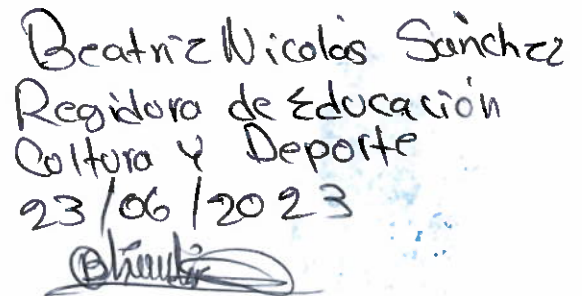 Beatriz Nicolás Sánchez
Regidora de Educación
Cultura y Deporte
23/06/2023